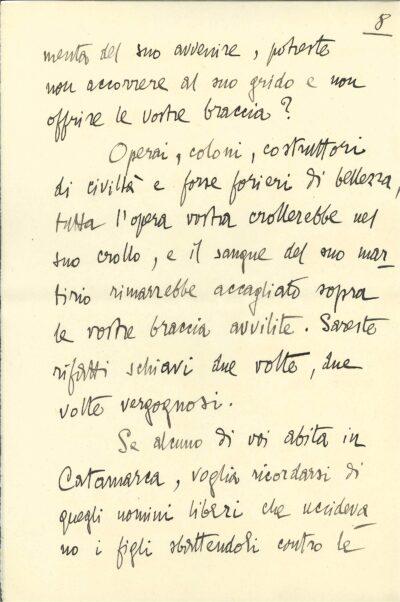 8
menta del suo avvenire, potreste
non accorrere al suo grido e non
offrire le vostre braccia?
Operai, coloni, costruttori
di civiltà e forse forieri di bellezza,
tutta l'opera vostra crollerebbe nel
suo crollo, e il sangue del suo mar
tirio rimarrebbe accagliato sopra
le vostre braccia avvilite. Sareste
rifatti schiavi due volte, due
volte vergognosi.
Se alcuno di voi abita in
Catamarca, voglia ricordarsi di
quegli uomini liberi che uccideva
no i figli sbattendoli contro le